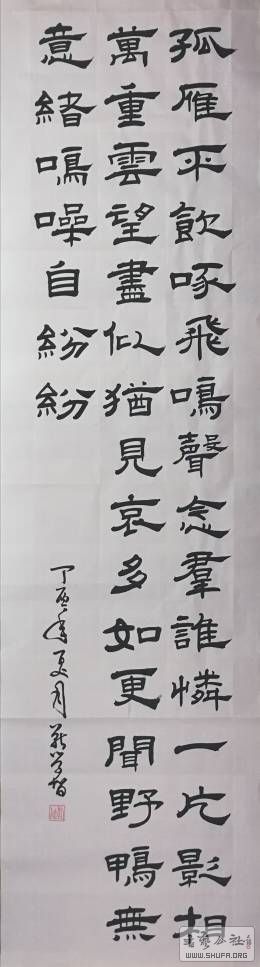 孤雁不飲啄飛鳴聲念羣誰憐一片影相
萬重雲望盡似猶見哀多如更聞野鴨無
意緒鳴噪自紛紛
丁酉年夏月
书艺公社
WWW.SHUFA.ORG